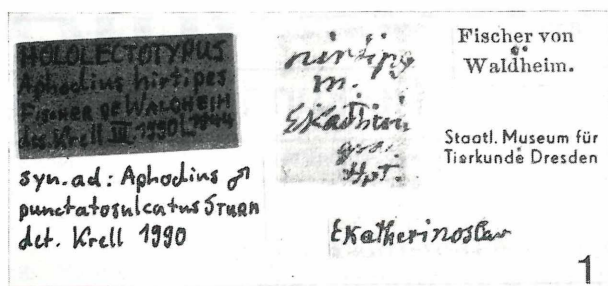 HOLOLECTOTYPUS
Aphodius hirtipes
FISCHER DE WALDHEIM
des. Krell III. 1990 1844
syn. ad: Aphodius ♂
punctatosulcatus STURM
det. Krell 1990
hirtipes
m.
Ekatherin
gra
Hpt.
Ekatherinoslav
Fischer von
Waldheim.
Staatl. Museum für
Tierkunde Dresden
1